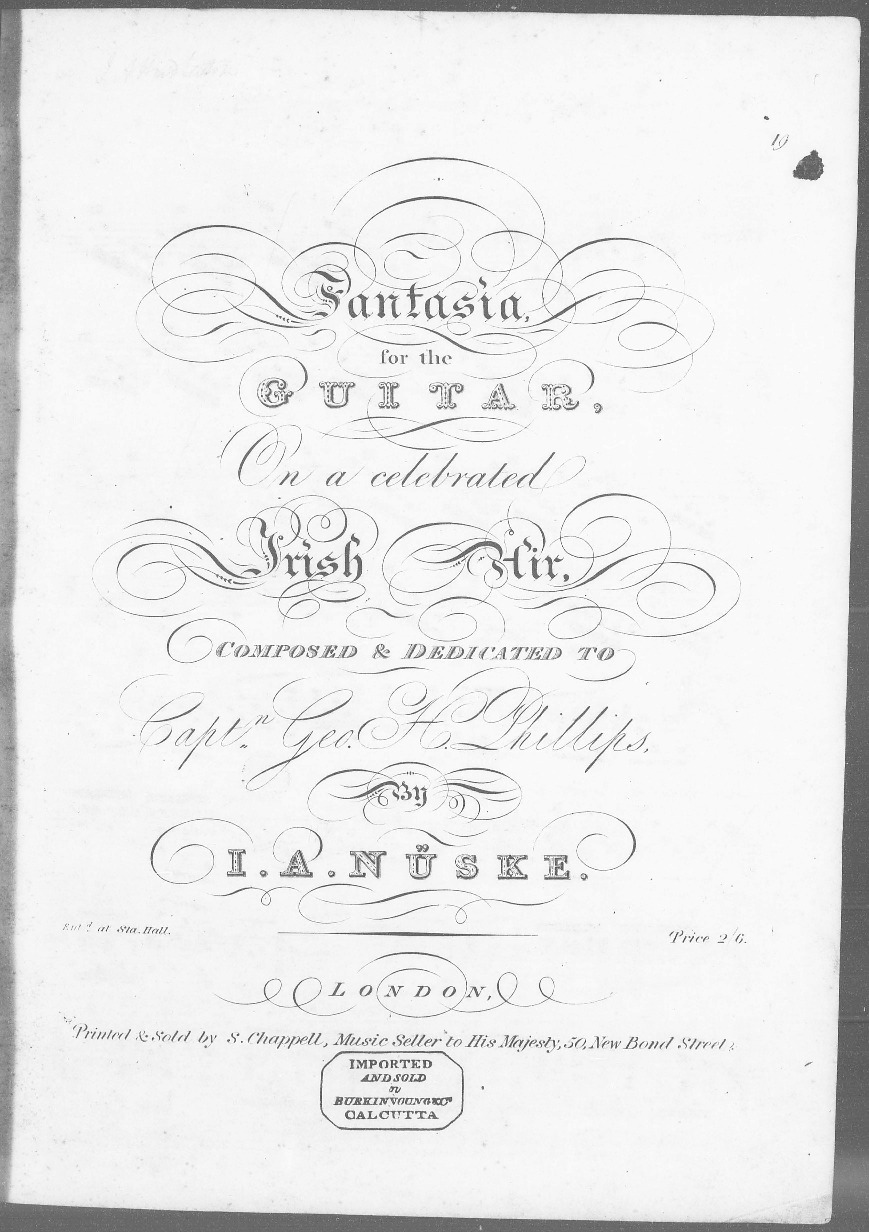 19
Fantasia,
for the
GUITAR,
On a celebrated
Irish Air,
COMPOSED & DEDICATED TO
Capt.n Geo. H. Phillips,
By
I. A. NÜSKE.
Ent.d at Sta. Hall.
Price 2/6.
LONDON,
Printed & Sold by S. Chappell, Music Seller to His Majesty, 50, New Bond Street,
IMPORTED
AND SOLD
BY
BURKINYOUNG & Co
CALCUTTA